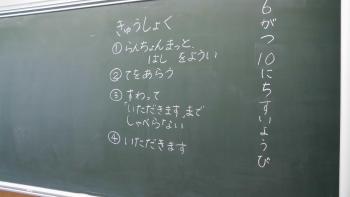 6がつ10にちすいようび
きゅうしょく
①らんちょんまっと、
はしをようい
②てをあらう
③すわって
"いただきます"まで
しゃべらない
④いただきます